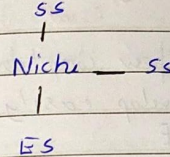 SS
Niche — SS
ES